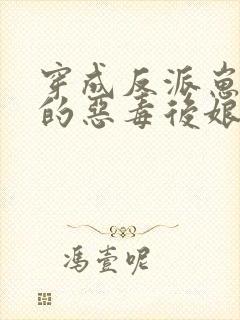 穿成反派崽
的恶毒後娘
冯壹呢